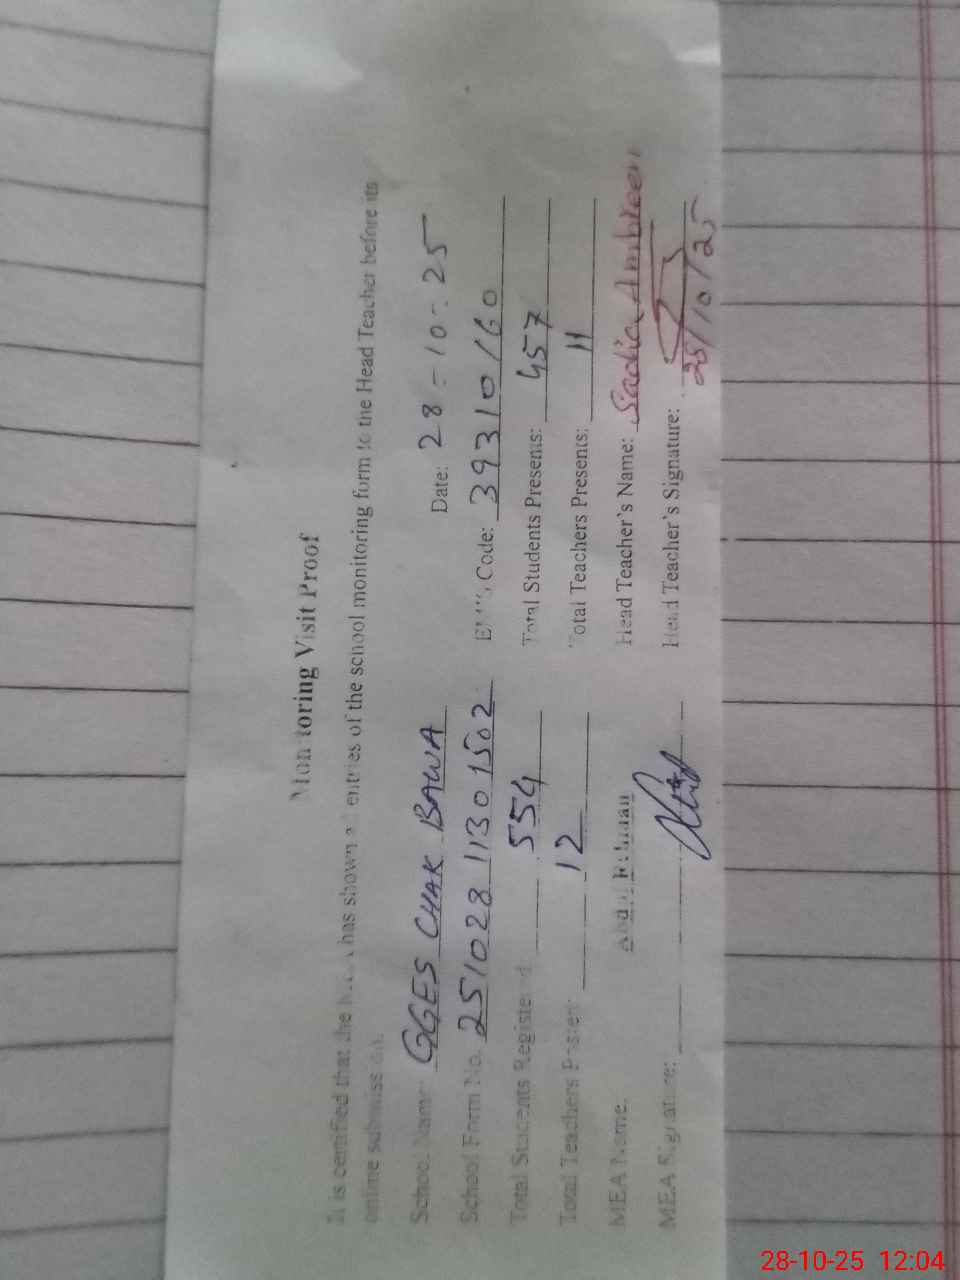 Monitoring Visit Proof
It is certified that the MEA has shown all entries of the school monitoring form to the Head Teacher before its
online submission.
School Name: GGES CHAK BAWA Date: 28-10-25
School Form No. 251028 1130 1502 EMIS Code: 39310160
Total Students Registered: 554 Total Students Presents: 457
Total Teachers Posted: 12 Total Teachers Presents: 11
MEA Name: Abdul Rehman Head Teacher's Name: Sadia Ambreen
MEA Signature: Head Teacher's Signature:
28/10/25
28-10-25 12:04